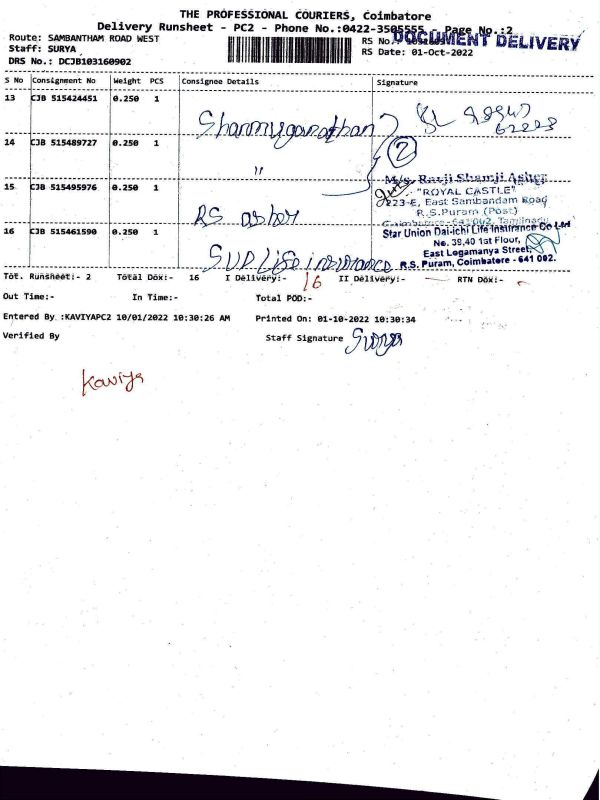 THE PROFESSIONAL COURIERS, Coimbatore
Delivery Runsheet - PC2 - Phone No.:0422-3505555 Page No.:2
Route: SAMBANTHAM ROAD WEST
RS No.:
DOCUMENT DELIVERY
Staff: SURYA
RS Date: 01-Oct-2022
DRS No.: DCJB103160902
S No Consignment No Weight PCS Consignee Details Signature
13 CJB 515424451 0.250 1
Shanmuganathan
14 CJB 515489727 0.250 1
"
2
15 CJB 515495976 0.250 1
RS asher
M/s. Ravji Shamji Asher
"ROYAL CASTLE"
223-E, East Sambandam Road
R.S.Puram (Post)
Coimbatore - 641 002, Tamilnadu
16 CJB 515461590 0.250 1
SUD Life insurance
Star Union Dai-ichi Life Insurance Co Ltd
No. 39,40 1st Floor,
East Logamanya Street,
R.S. Puram, Coimbatore - 641 002.
Tot. Runsheet:- 2 Total Dox:- 16 I Delivery:- 16 II Delivery:- RTN Dox:-
Out Time:- In Time:- Total POD:-
Entered By :KAVIYAPC2 10/01/2022 10:30:26 AM Printed On: 01-10-2022 10:30:34
Verified By Staff Signature Surya
Kaviya